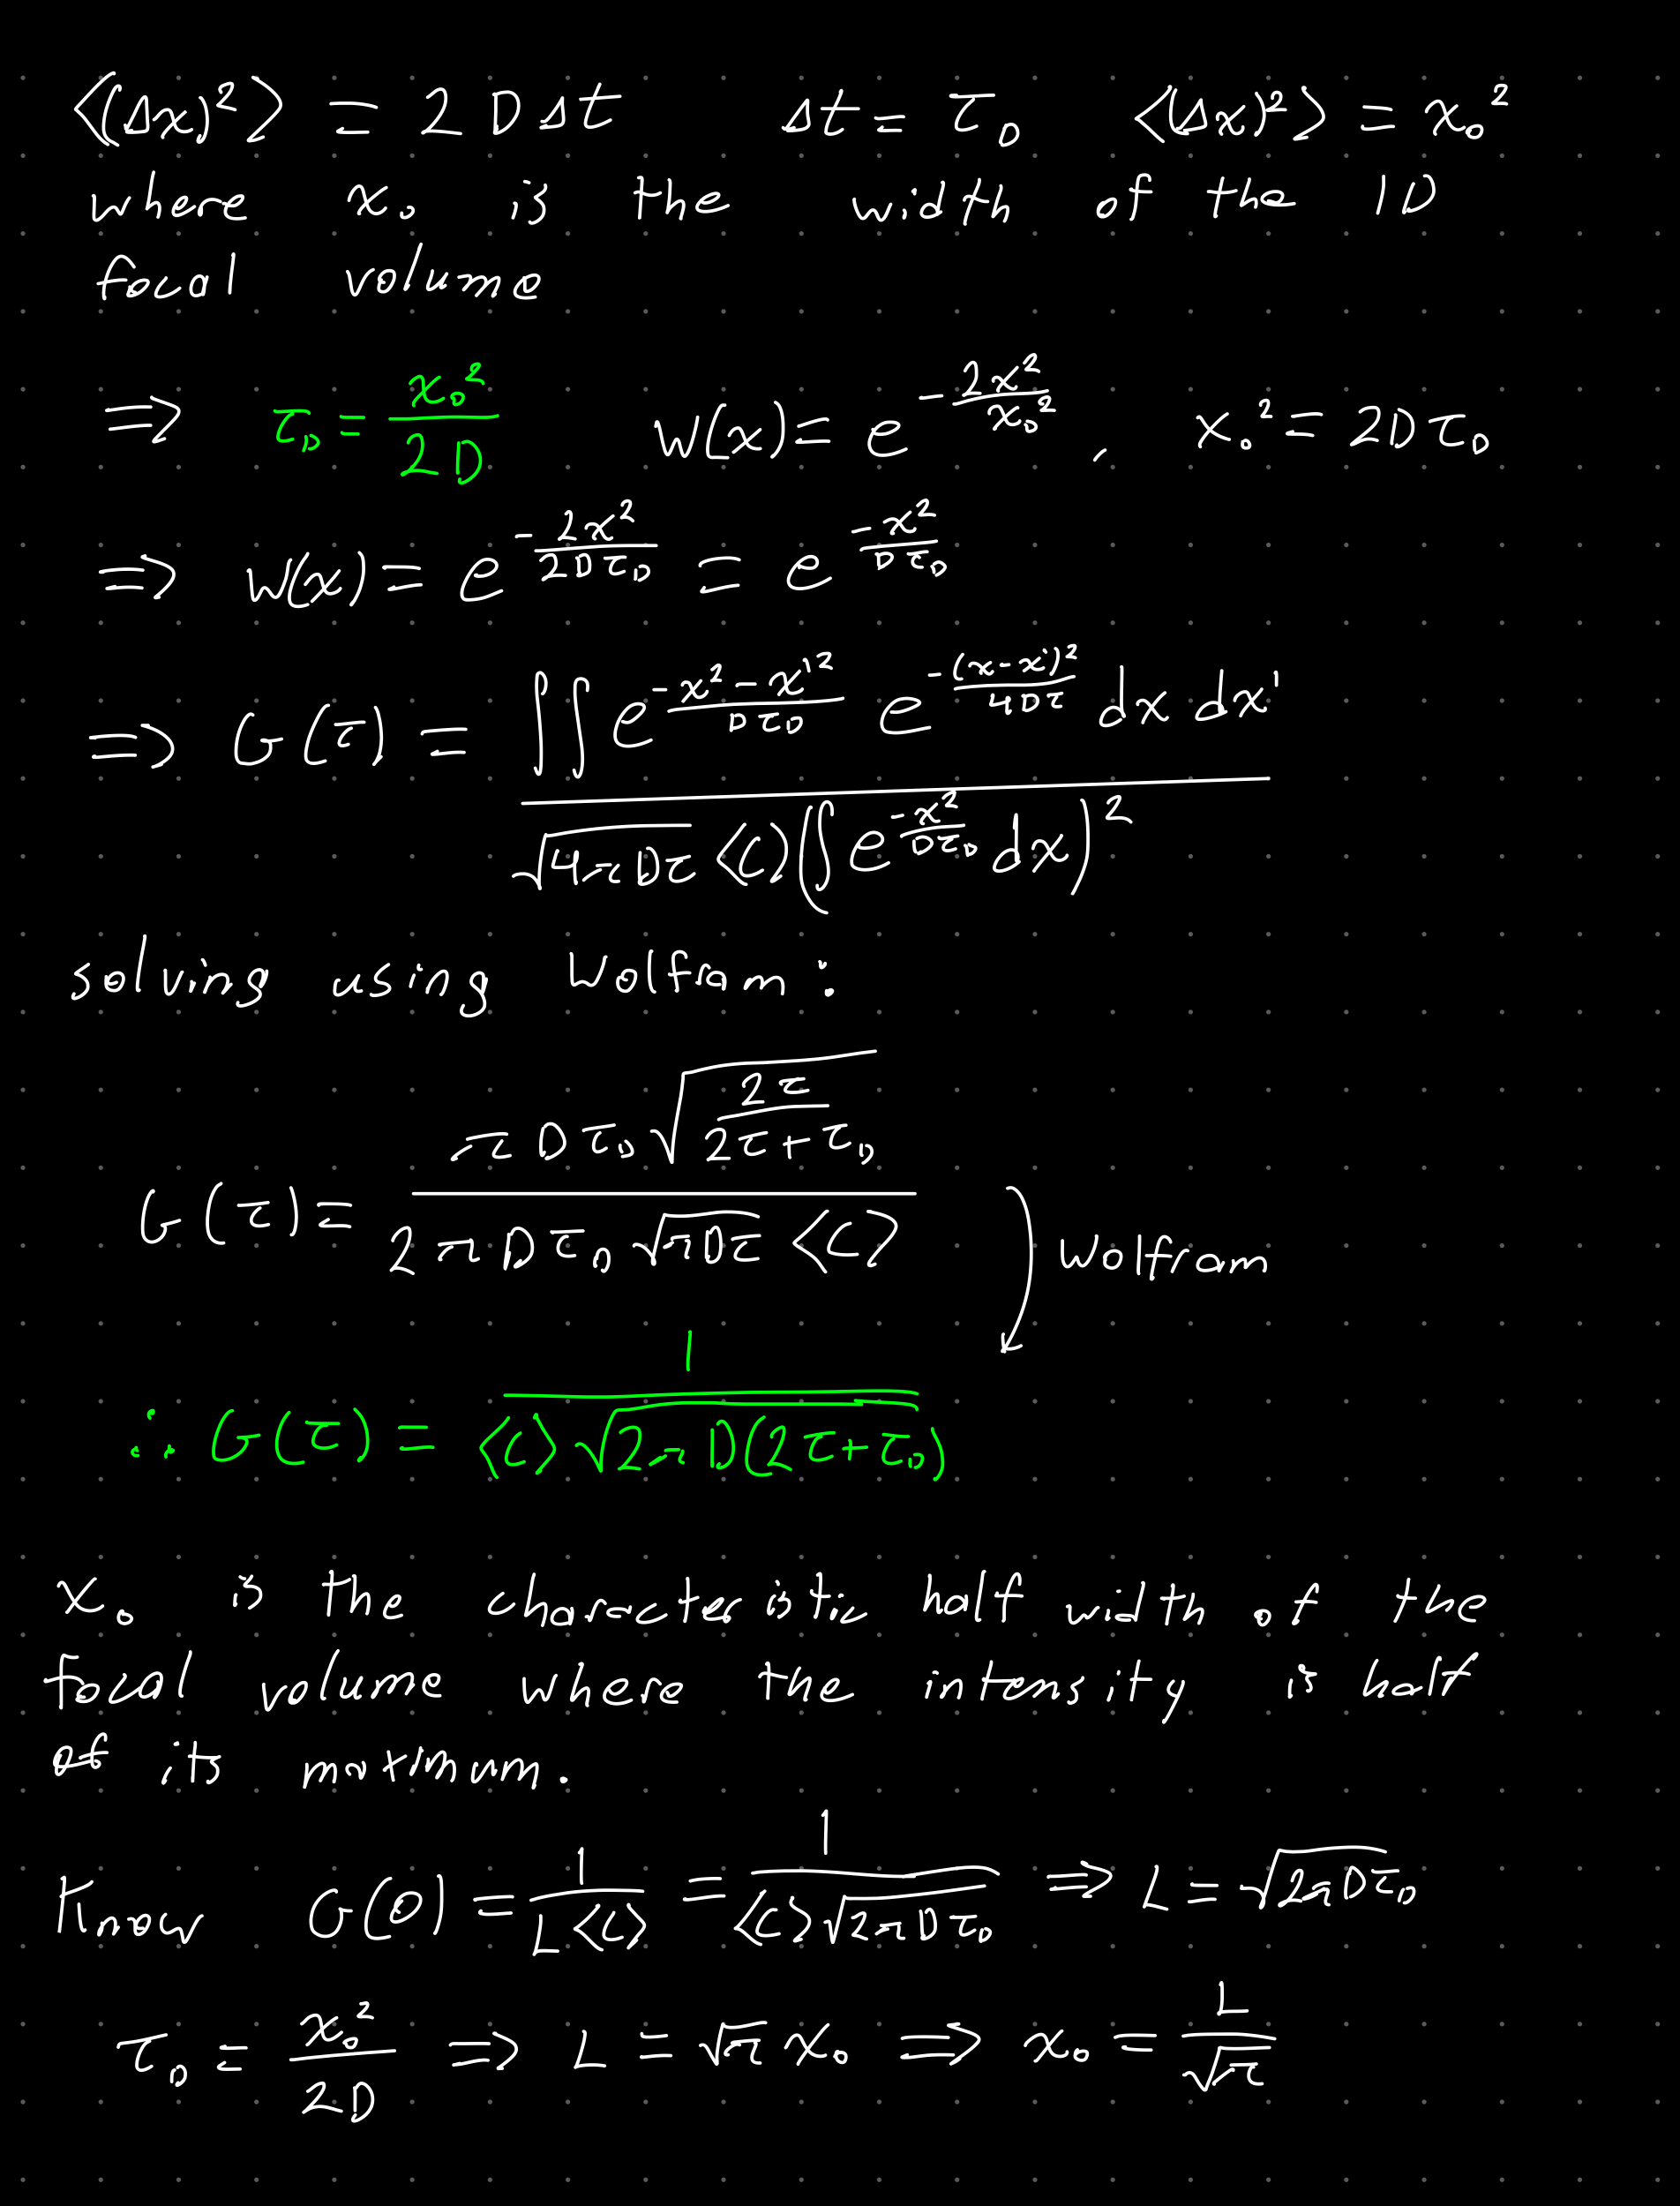 ⟨(Δx)²⟩ = 2DΔt   Δt = τ_D   ⟨(Δx)²⟩ = x₀²
where x₀ is the width of the 1D
focal volume
⇒ τ_D = x₀²/2D   W(x) = e^(-2x²/x₀²), x₀² = 2Dτ_D
⇒ W(x) = e^(-2x²/2Dτ_D) = e^(-x²/Dτ_D)
⇒ G(τ) = ∫∫ e^((-x²-x'²)/Dτ_D) e^(-(x-x')²/4Dτ) dx dx' / (√(4πDτ) ⟨C⟩ (∫ e^(-x²/Dτ_D) dx)²)
solving using Wolfram:
G(τ) = πDτ_D √(2τ/(2τ+τ_D)) / (2πDτ_D √(πDτ) ⟨C⟩)
Wolfram
∴ G(τ) = 1/(⟨C⟩ √(2πD(2τ+τ_D)))
x₀ is the characteristic half width of the
focal volume where the intensity is half
of its maximum.
Know G(0) = 1/(L⟨C⟩) = 1/(⟨C⟩√(2πDτ_D)) ⇒ L = √(2πDτ_D)
τ_D = x₀²/2D ⇒ L = √π x₀ ⇒ x₀ = L/√π